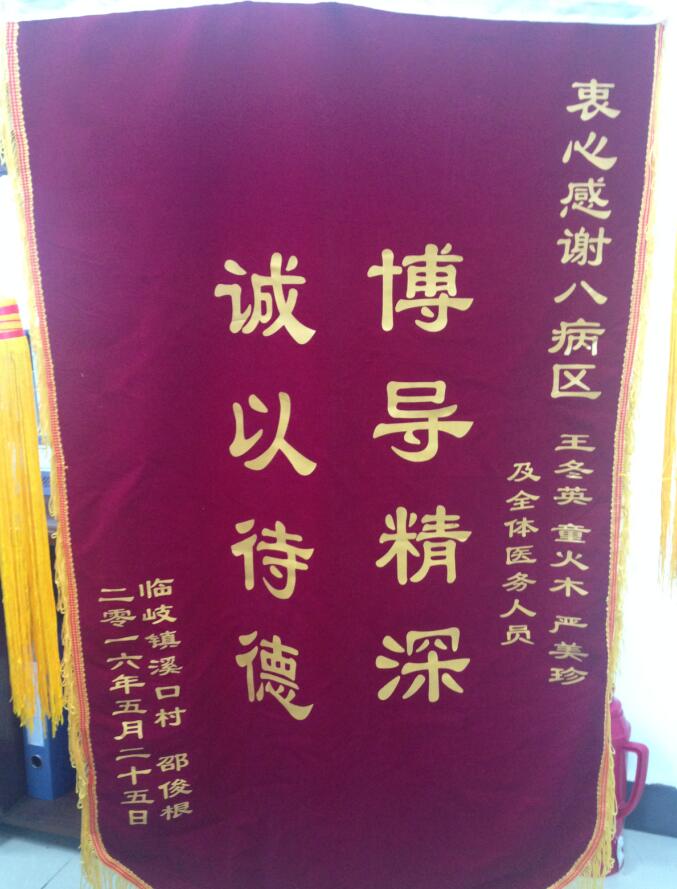 衷心感谢八病区 王冬英 童火木 严美珍
及全体医务人员
博导精深
诚以待德
临岐镇溪口村 邵俊根
二零一六年五月二十五日